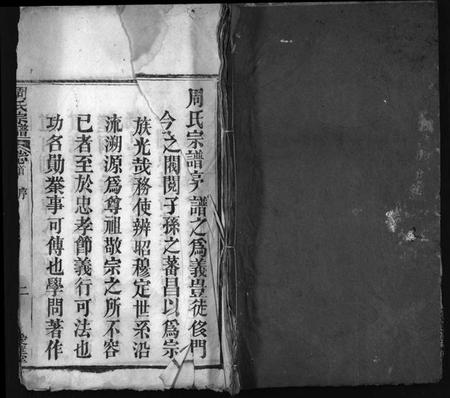 周氏宗譜序 譜之爲義豈徒侈門
今之閥閱子孫之蕃昌以爲宗
族光哉務使辨昭穆定世系沿
流溯源爲尊祖敬宗之所不容
已者至於忠孝節義行可法也
功名勛業事可傳也學問著作
周氏宗譜 卷首 序 二